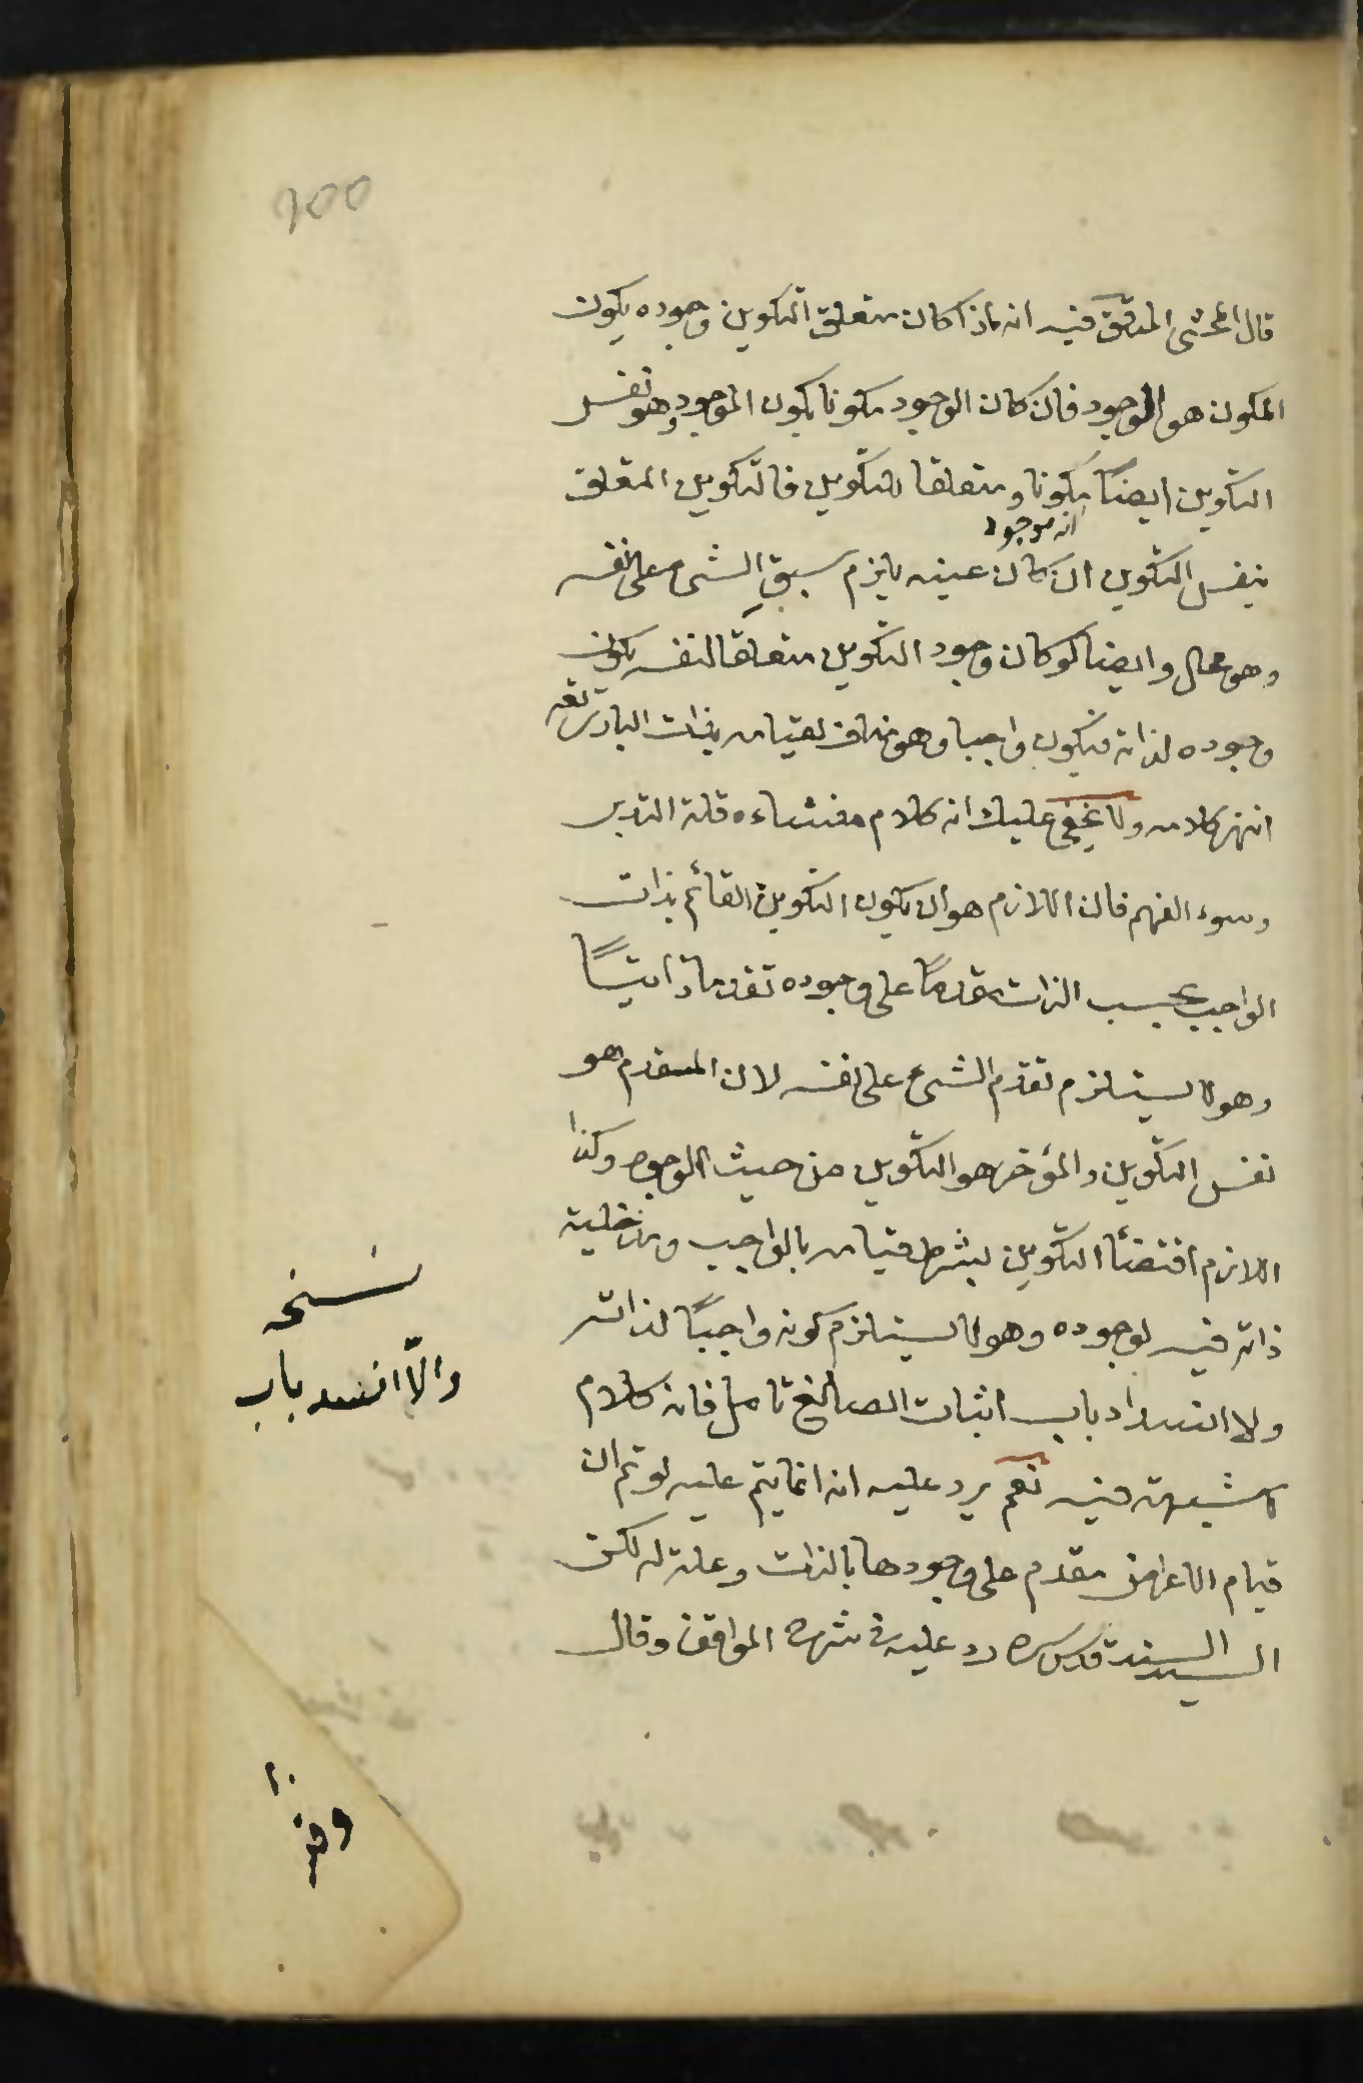 100
قال المحشى المدقق فيه انه اذا كان متعلق التكوين وجوده يكون
المكون هو الموجود فان كان الوجود مكونا يكون الموجود وهو نفس
التكوين ايضًا مكونا ومتعلقا للتكوين فالتكوين المتعلق
انه موجود
بنفس التكوين ان كان عينه يلزم سبق الشىء على نفسه
وهو محال وايضا لو كان وجود التكوين متعلقا لنفسه يكون
وجوده لذاته فيكون واجبا وهو مناف لقيامه بذات البارى تعه
انتهى كلامه ولا يخفى عليك انه كلام منشاءه قلة التدبر
وسوء الفهم فان اللازم هو ان يكون التكوين القائم بذات
الواجب بحسب الذات مقدمًا على وجوده تقدما ذاتيًا
وهو لا يستلزم تقدم الشىء على نفسه لان المتقدم هو
نفس التكوين والمؤخر هو التكوين من حيث الوجود وكذا
اللازم اقتضاء التكوين بشرط قيامه بالواجب ومدخلية
ذاته فيه لوجوده وهو لا يستلزم كونه واجبًا لذاته
ولا انسداد باب اثبات الصانع تامل فانه كلام
لا شبهة فيه نعم يرد عليه انه انما يتم عليه لو تم ان
قيام الاعراض مقدم على وجودها بالذات وعلة له لكن
السيد السند قدس سره رد عليه فى شرح المواقف وقال
نسخه
والّا انسد باب